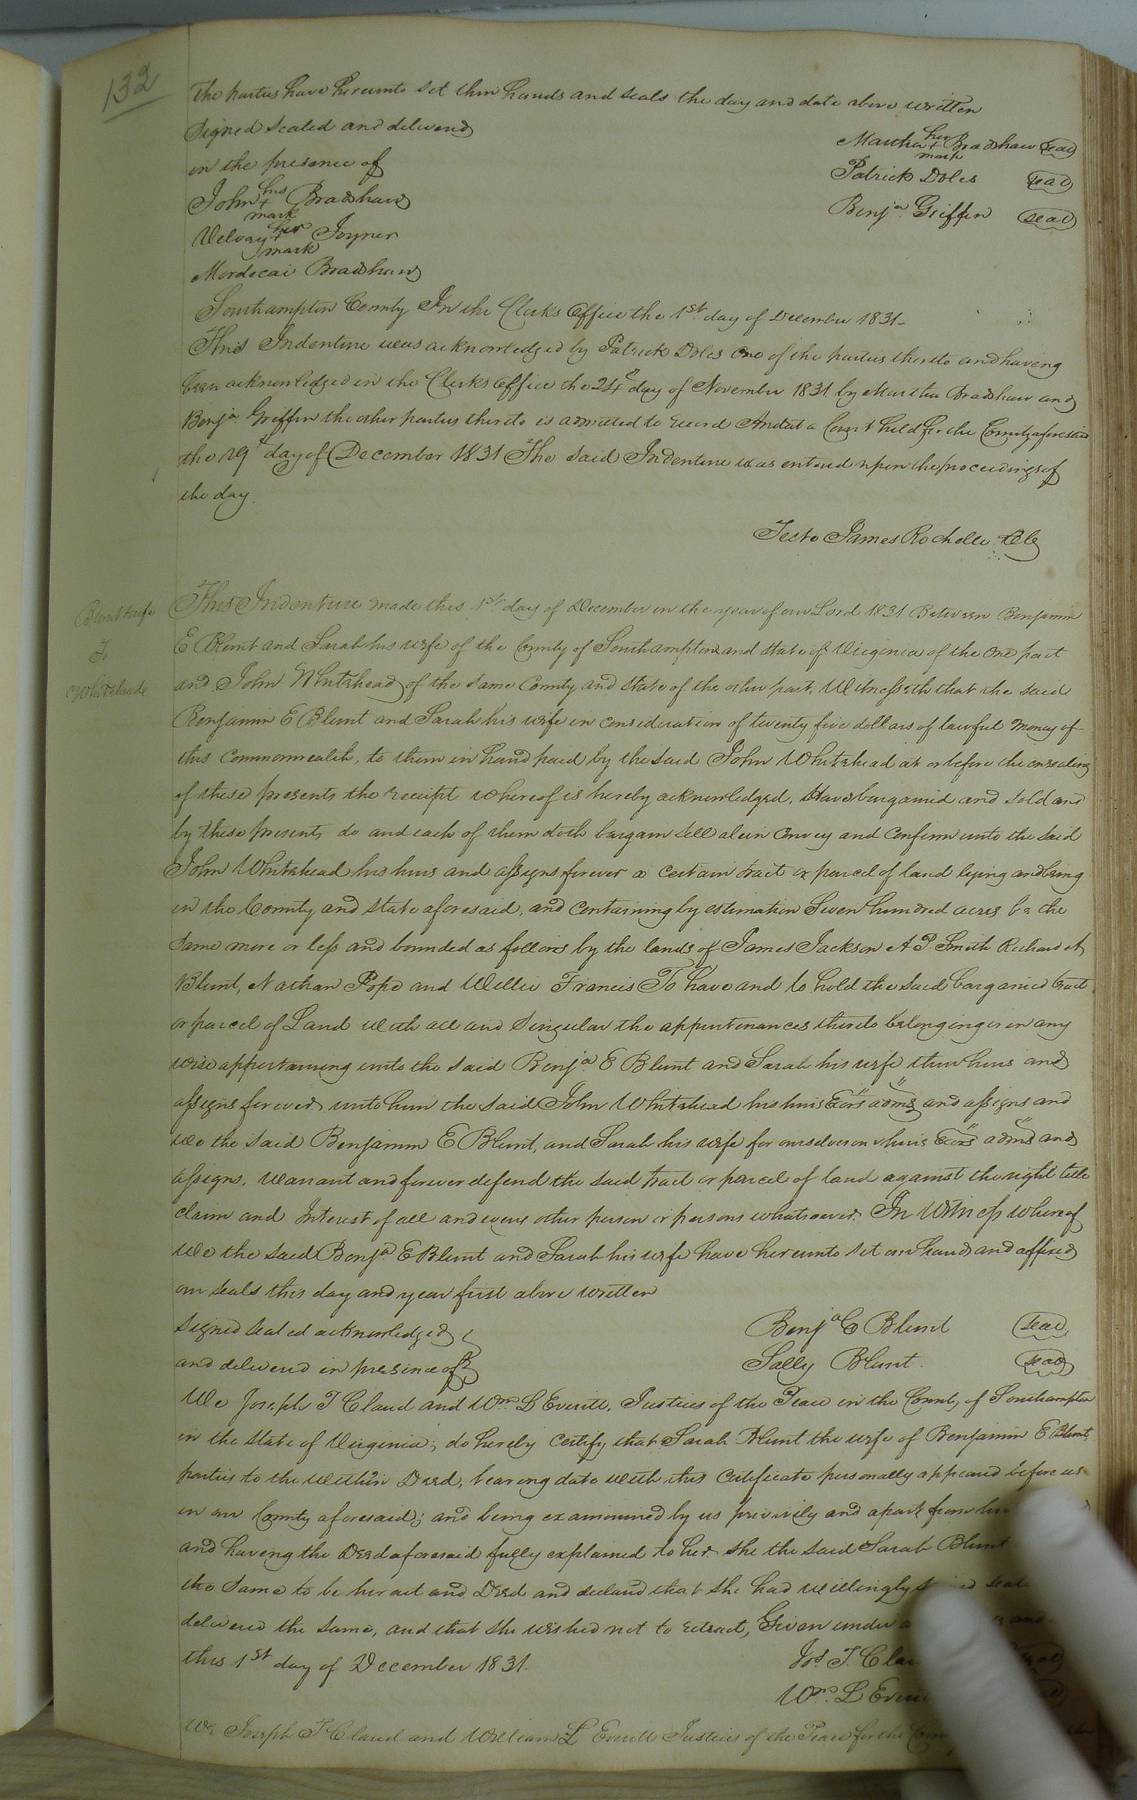 132
The parties have hereunto set their hands and seals the day and date above written
Signed Sealed and delivered
in the presence of
Martha her + mark Bradshaw seal
Patrick Doles seal
Benja Griffin seal
John his + mark Bradshaw
Velvay her + mark Joyner
Mordecai Bradshaw
Southampton County In the Clerks Office the 1st day of December 1831-
This Indenture was acknowledged by Patrick Doles One of the parties thereto and having
been acknowledged in the Clerks Office the 24th day of November 1831 by Martha Bradshaw and
Benja Griffin the other parties thereto is admitted to record And at a Court held for the County aforesaid
the 19th day of December 1831 The said Indenture was entered upon the proceedings of
the day.
Teste James Rochelle Clk
Blunt & wife
To
Whitehead
This Indenture made this 1st day of December in the year of our Lord 1831 Between Benjamin
E Blunt and Sarah his wife of the County of Southampton and state of Virginia of the one part
and John Whitehead of the same County and State of the other part, Witnesseth that the said
Benjamin E Blunt and Sarah his wife in consideration of twenty five dollars of lawful money of
this Commonwealth, to them in hand paid by the said John Whitehead at or before the ensealing
of these presents the receipt whereof is hereby acknowledged, Have bargained and sold and
by these presents do and each of them doth bargain sell alien convey and confirm unto the said
John Whitehead his heirs and assigns forever a certain tract or parcel of land lying and being
in the County and state aforesaid, and containing by estimation Seven hundred acres be the
same more or less and bounded as follows by the lands of James Jackson A P. Smith Richard A
Blunt, Nathan Pope and Willie Francis To have and to hold the said bargained tract
or parcel of Land with all and Singular the appurtenances thereto belonging or in any
wise appertaining unto the said Benja E Blunt and Sarah his wife their heirs and
assigns forever unto him the said John Whitehead his heirs Exors adms and assigns and
We the said Benjamin E Blunt, and Sarah his wife for ourselves our heirs Exors adms and
assigns, warrant and forever defend the said tract or parcel of land against the right title
claim and Interest of all and every other person or persons whatsoever. In Witness whereof
We the said Benja E Blunt and Sarah his wife have hereunto set our hands and affixed
our seals this day and year first above written
Signed sealed acknowledged
and delivered in presence of
Benja E Blunt seal
Sally Blunt. seal
We Joseph T Claud and Wm L Everitt, Justices of the Peace in the County of Southampton
in the State of Virginia; do hereby certify that Sarah Blunt the wife of Benjamin E Blunt,
parties to the within Deed, bearing date with this Certificate personally appeared before us
in our County aforesaid; and being examined by us privily and apart from her
and having the Deed aforesaid fully explained to her she the said Sarah Blunt
the same to be her act and Deed and declared that she had willingly
delivered the same, and that she wished not to retract, Given under
this 1st day of December 1831.
Jos T. Clau
Wm L Everi
We Joseph T Claud and William L Everitt Justices of the Peace for the